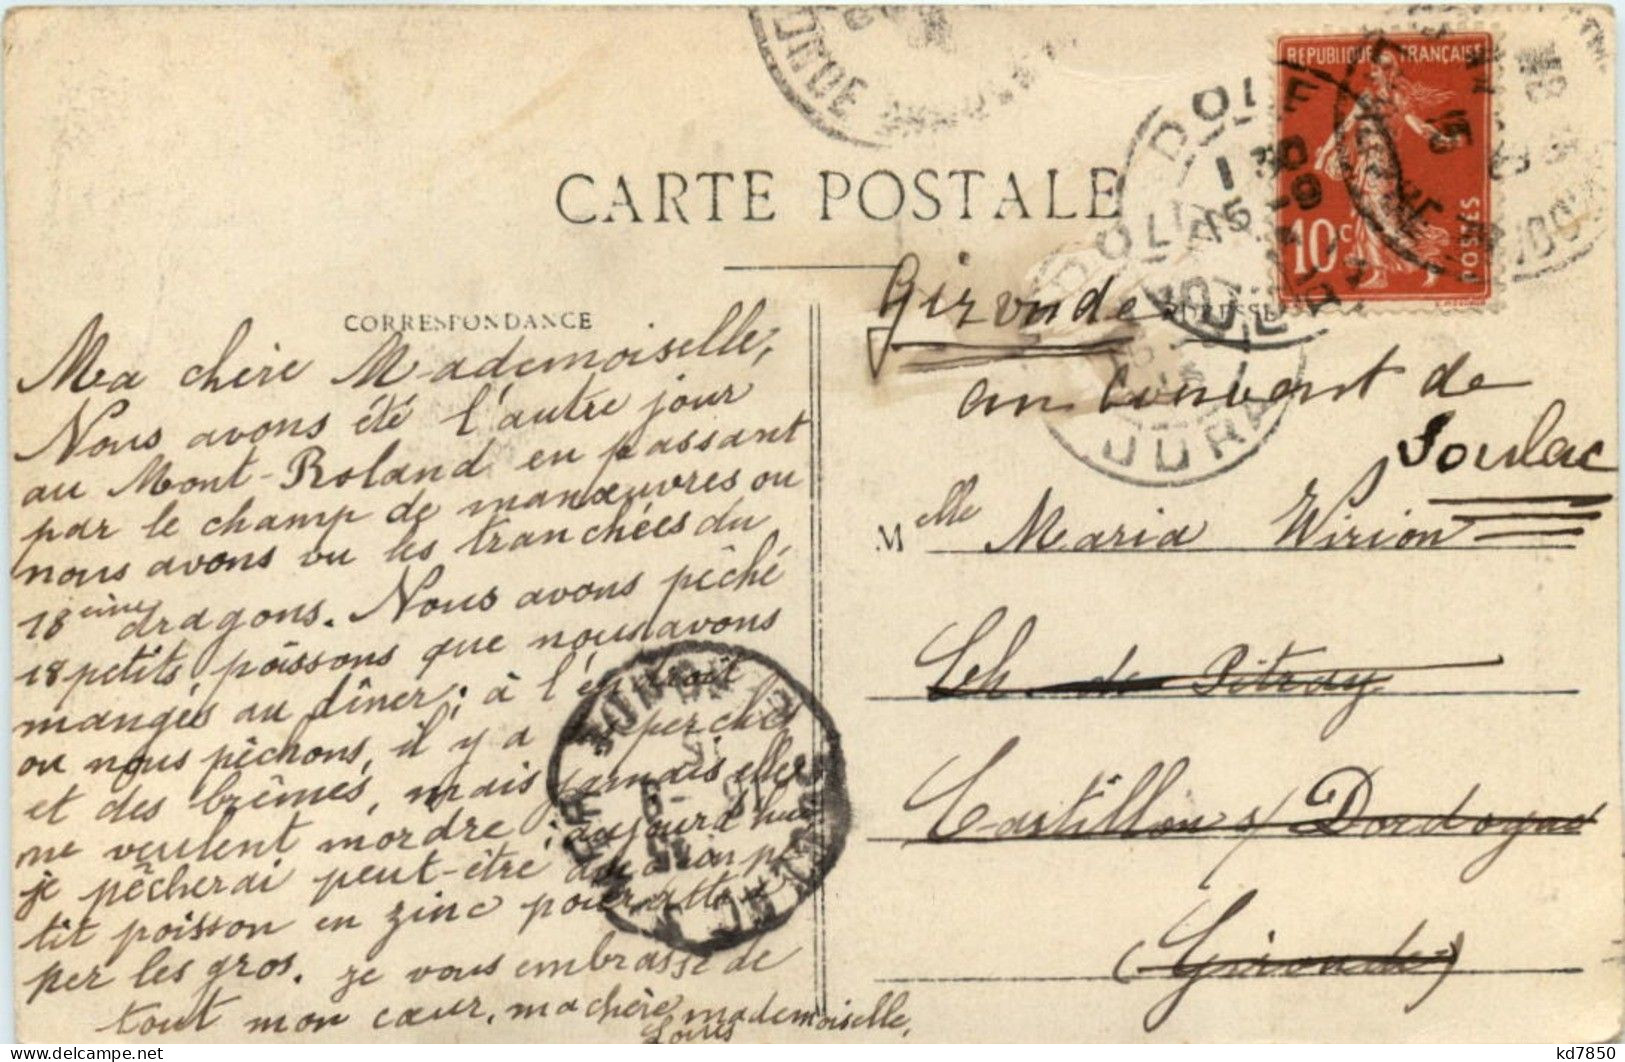 CARTE POSTALE
REPUBLIQUE FRANÇAISE
10c
POSTES
DOLE
1 30
15 -9
JURA
DOLE
JURA
CORRESPONDANCE
Ma chère Mademoiselle,
Nous avons été l'autre jour
au Mont-Roland en passant
par le champ de manœuvres ou
nous avons vu les tranchées du
18ème dragons. Nous avons pêché
18 petits, poissons que nous avons
mangés au dîner; à l'endroit
ou nous pêchons, il y a des perches
et des brêmes, mais jamais elles
ne veulent mordre; aujourd'hui
je pêcherai peut-être avec un pe
tit poisson en zinc pour attra
per les gros. je vous embrasse de
tout mon cœur, ma chère mademoiselle,
Louis
Gironde
au Couvent de
Soulac
Melle Maria Wirion
Ch. de Pitray
Castillon s/ Dordogne
(Gironde)
delcampe.net
kd7850